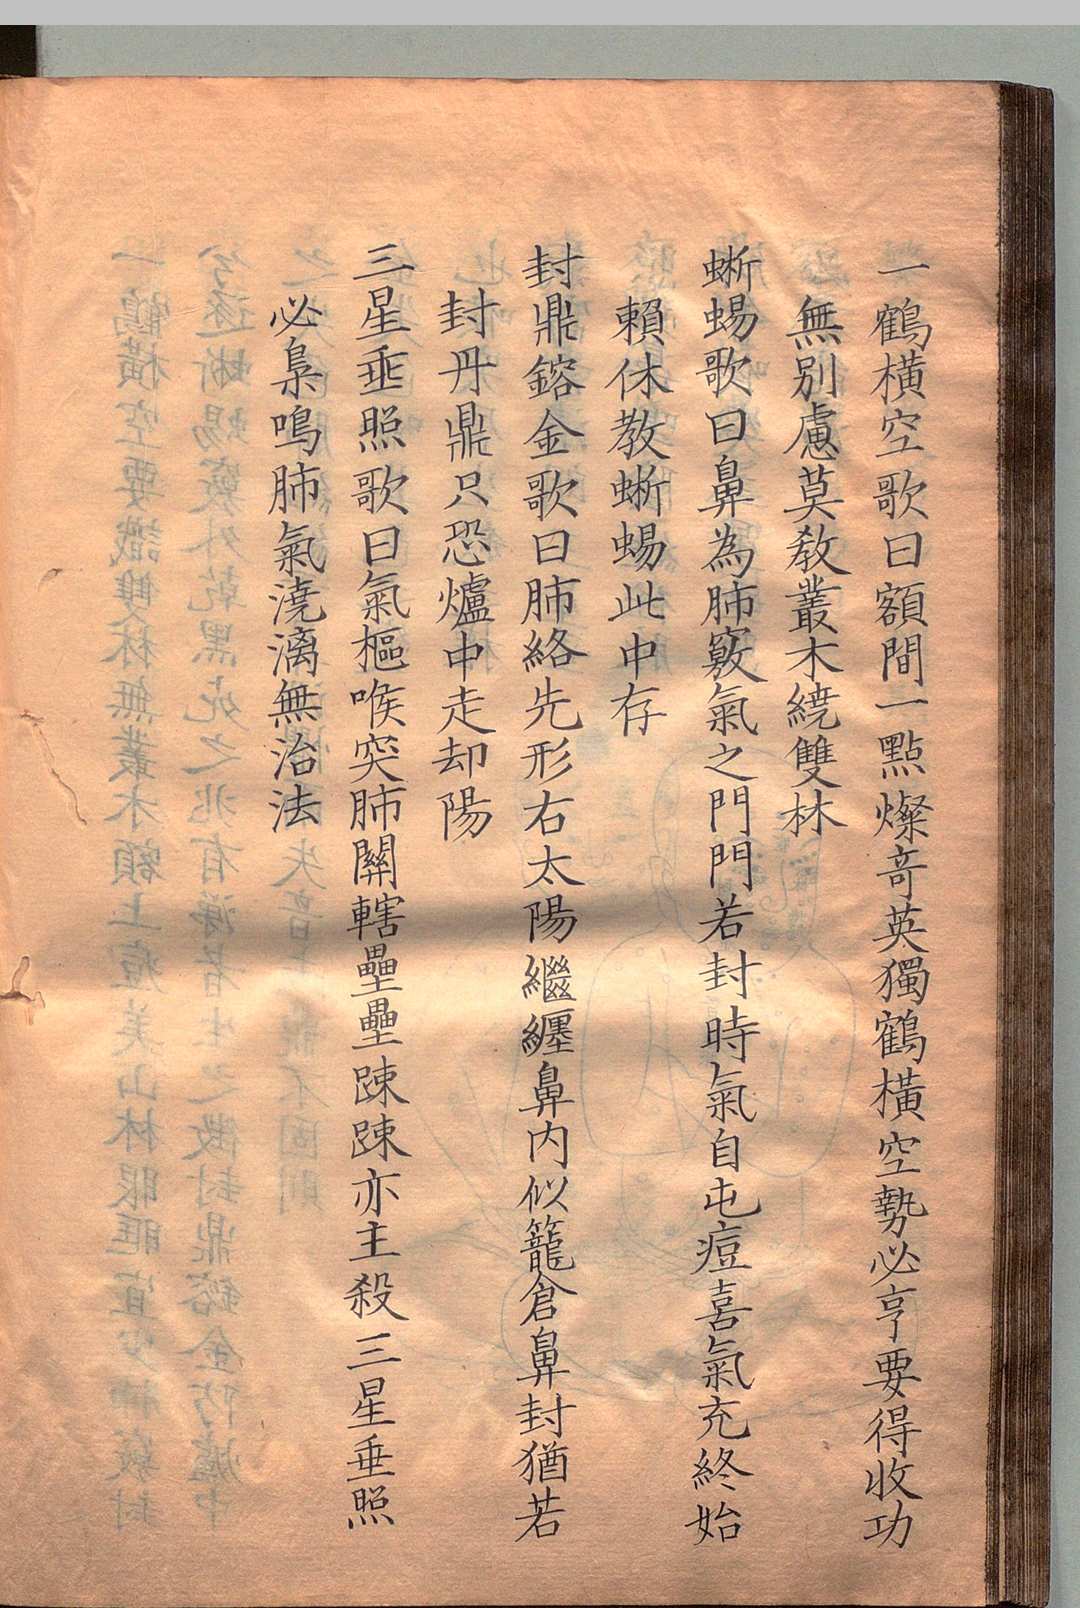 一鶴橫空歌曰額間一點燦奇英獨鶴橫空勢必亨要得收功
無別慮莫教叢木繞雙林
蜥蜴歌曰鼻為肺竅氣之門門若封時氣自屯痘喜氣充終始
賴休教蜥蜴此中存
封鼎鎔金歌曰肺絡先形右太陽繼纏鼻内似籠倉鼻封猶若
封丹鼎只恐爐中走却陽
三星垂照歌曰氣樞喉突肺關轄壘壘踈踈亦主殺三星垂照
必梟鳴肺氣澆漓無治法